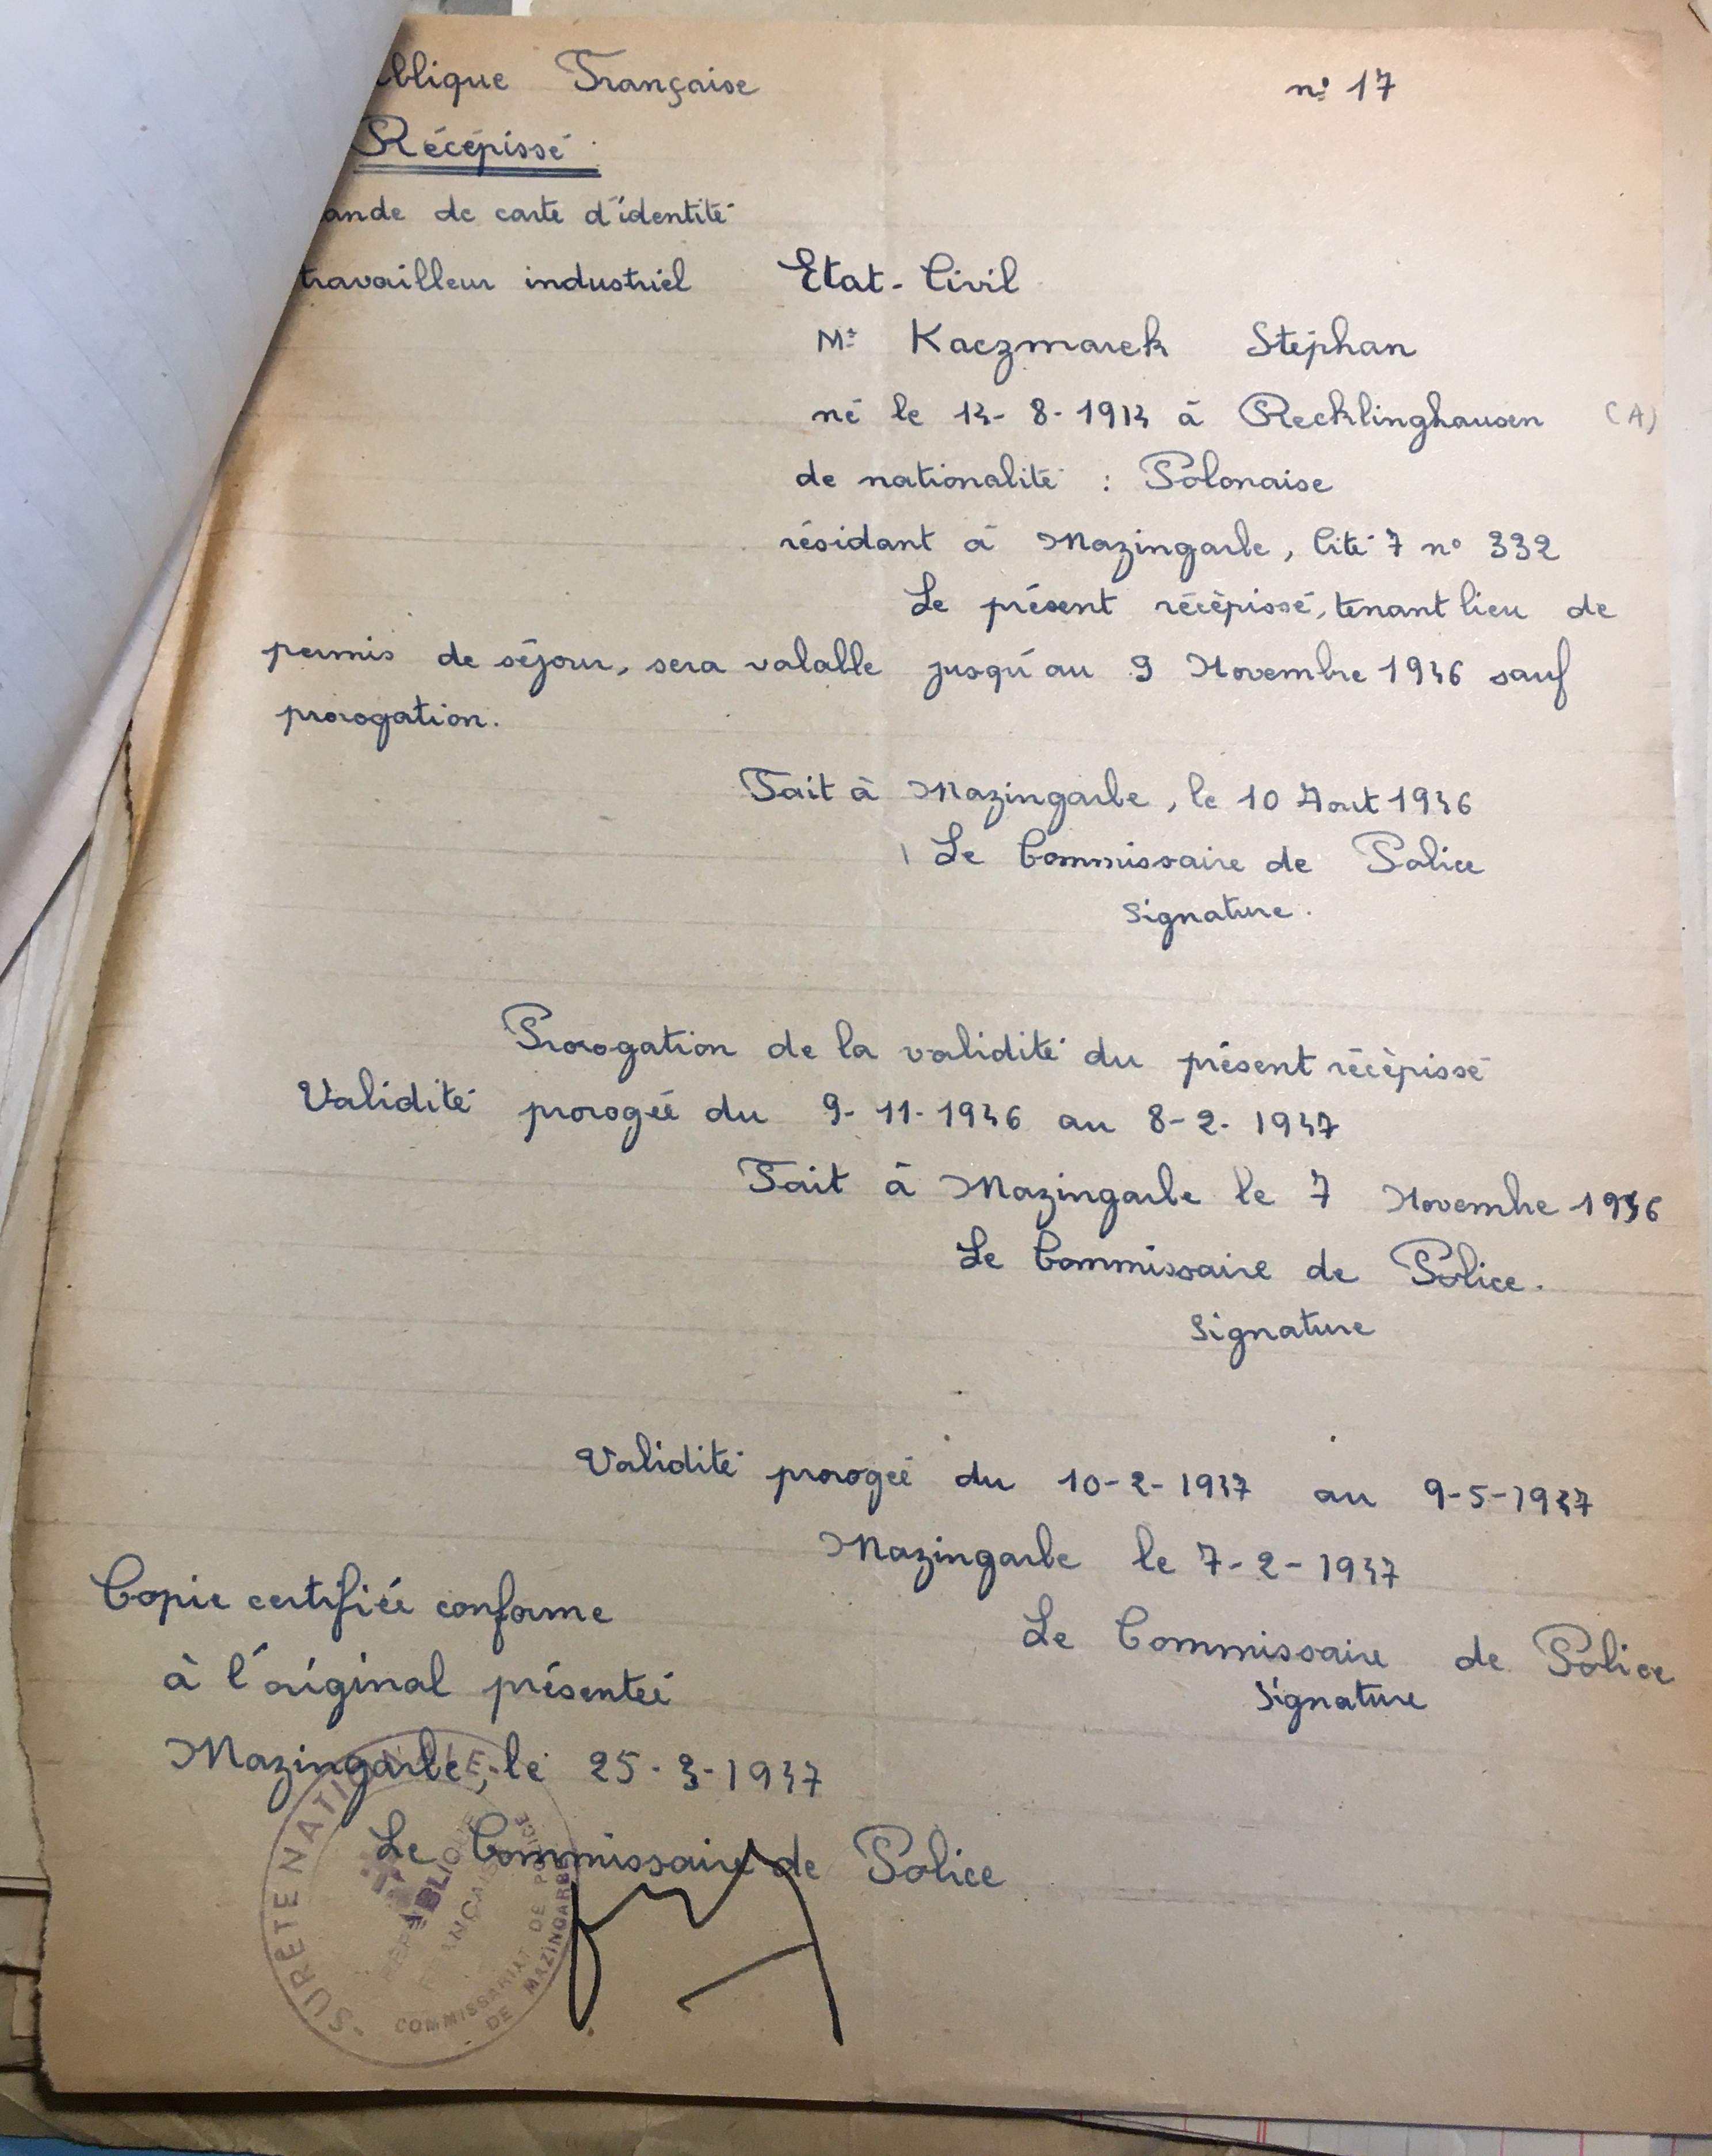 blique Française
n° 17
Récépissé
ande de carte d'identité
travailleur industriel
Etat-Civil
Mr Kaczmarek Stéphan
né le 13-8-1913 à Recklinghausen (A)
de nationalité : Polonaise
résidant à Mazingarbe, Cité 7 n° 332
Le présent récépissé, tenant lieu de
permis de séjour, sera valable jusqu'au 9 Novembre 1936 sauf
prorogation.
Fait à Mazingarbe, le 10 Aout 1936
Le Commissaire de Police
signature.
Prorogation de la validité du présent récépissé
Validité prorogée du 9-11-1936 au 8-2-1937
Fait à Mazingarbe le 7 Novembre 1936
Le Commissaire de Police.
signature
Validité prorogée du 10-2-1937 au 9-5-1937
Mazingarbe le 7-2-1937
Le Commissaire de Police
signature
Copie certifiée conforme
à l'original présentée
Mazingarbe, le 25-3-1937
Le Commissaire de Police
SURETE NATIONALE
REPUBLIQUE
FRANÇAISE
COMMISSARIAT DE POLICE
DE MAZINGARBE